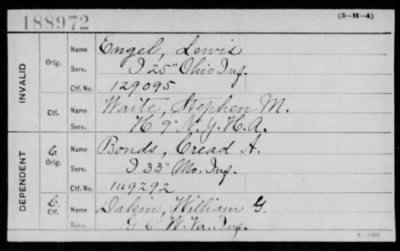 188972
(3-H-4)
INVALID
Orig.
Name Engel, Lewis
Serv. I 25" Ohio Inf.
Ctf. No. 129095
Ctf.
Name Waite, Stephen M.
Serv. H 9" N.Y.H.A.
DEPENDENT
6
Orig.
Name Bonds, Cread A.
Serv. I 33" Mo. Inf.
Ctf. No. 149292
C.
Ctf.
Name Dakin, William G.
Serv. G 6 W. Va. Inf.